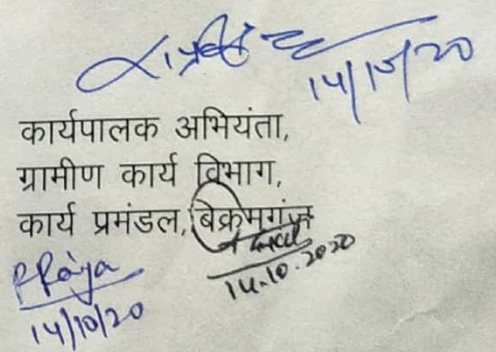 14/10/20
कार्यपालक अभियंता,
ग्रामीण कार्य विभाग,
कार्य प्रमंडल, बिक्रमगंज
14.10.2020
14/10/20